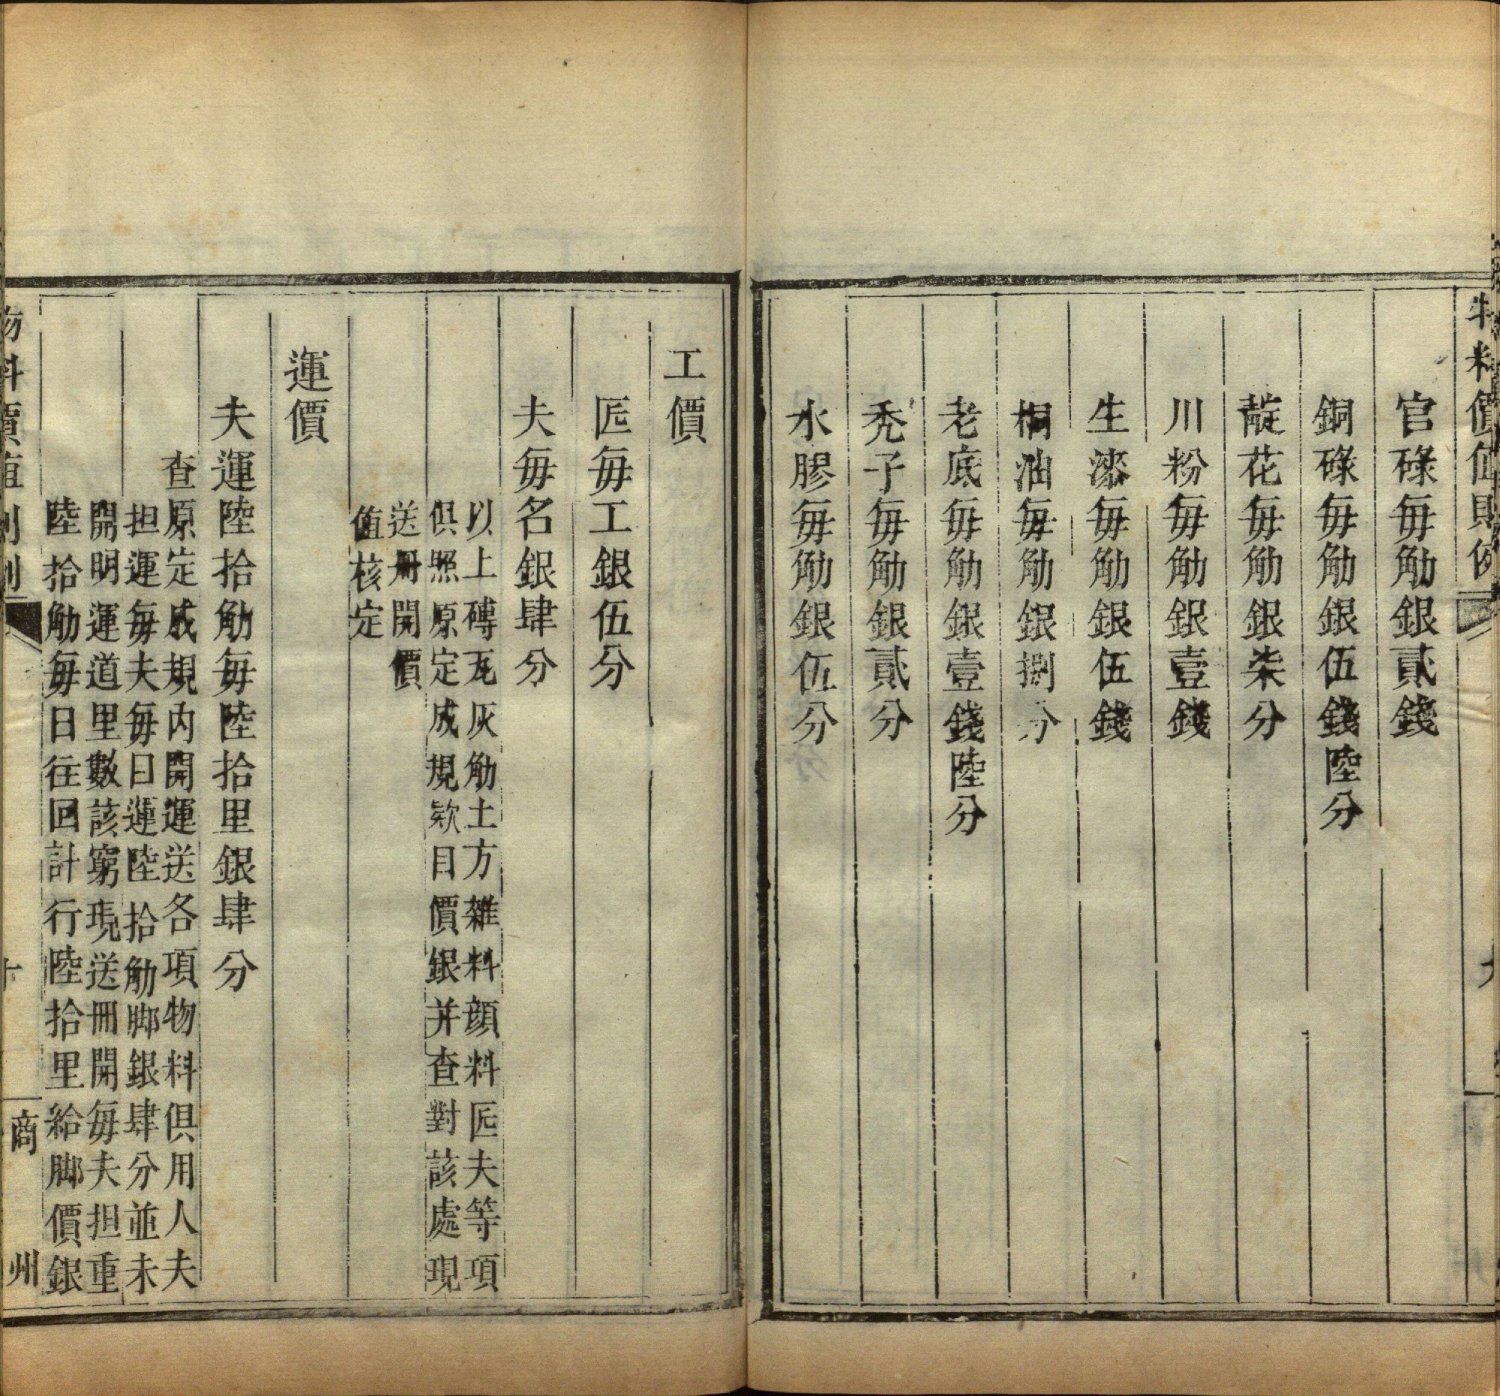 物料價值則例
官碌每觔銀貳錢
銅碌每觔銀伍錢陸分
靛花每觔銀柒分
川粉每觔銀壹錢
生漆每觔銀伍錢
桐油每觔銀捌分
老底每觔銀壹錢陸分
禿子每觔銀貳分
水膠每觔銀伍分
工價
匠每工銀伍分
夫每名銀肆分
以上磚瓦灰觔土方雜料顔料匠夫等項
俱照原定成規欵目價銀并查對該處現
送冊開價
值核定
運價
夫運陸拾觔每陸拾里銀肆分
查原定成規内開運送各項物料俱用人夫
担運每夫每日運陸拾觔脚銀肆分並未
開明運道里數該窮現送冊開每夫担重
陸拾觔每日往回計行陸拾里給脚價銀
物料價值則例
商
州